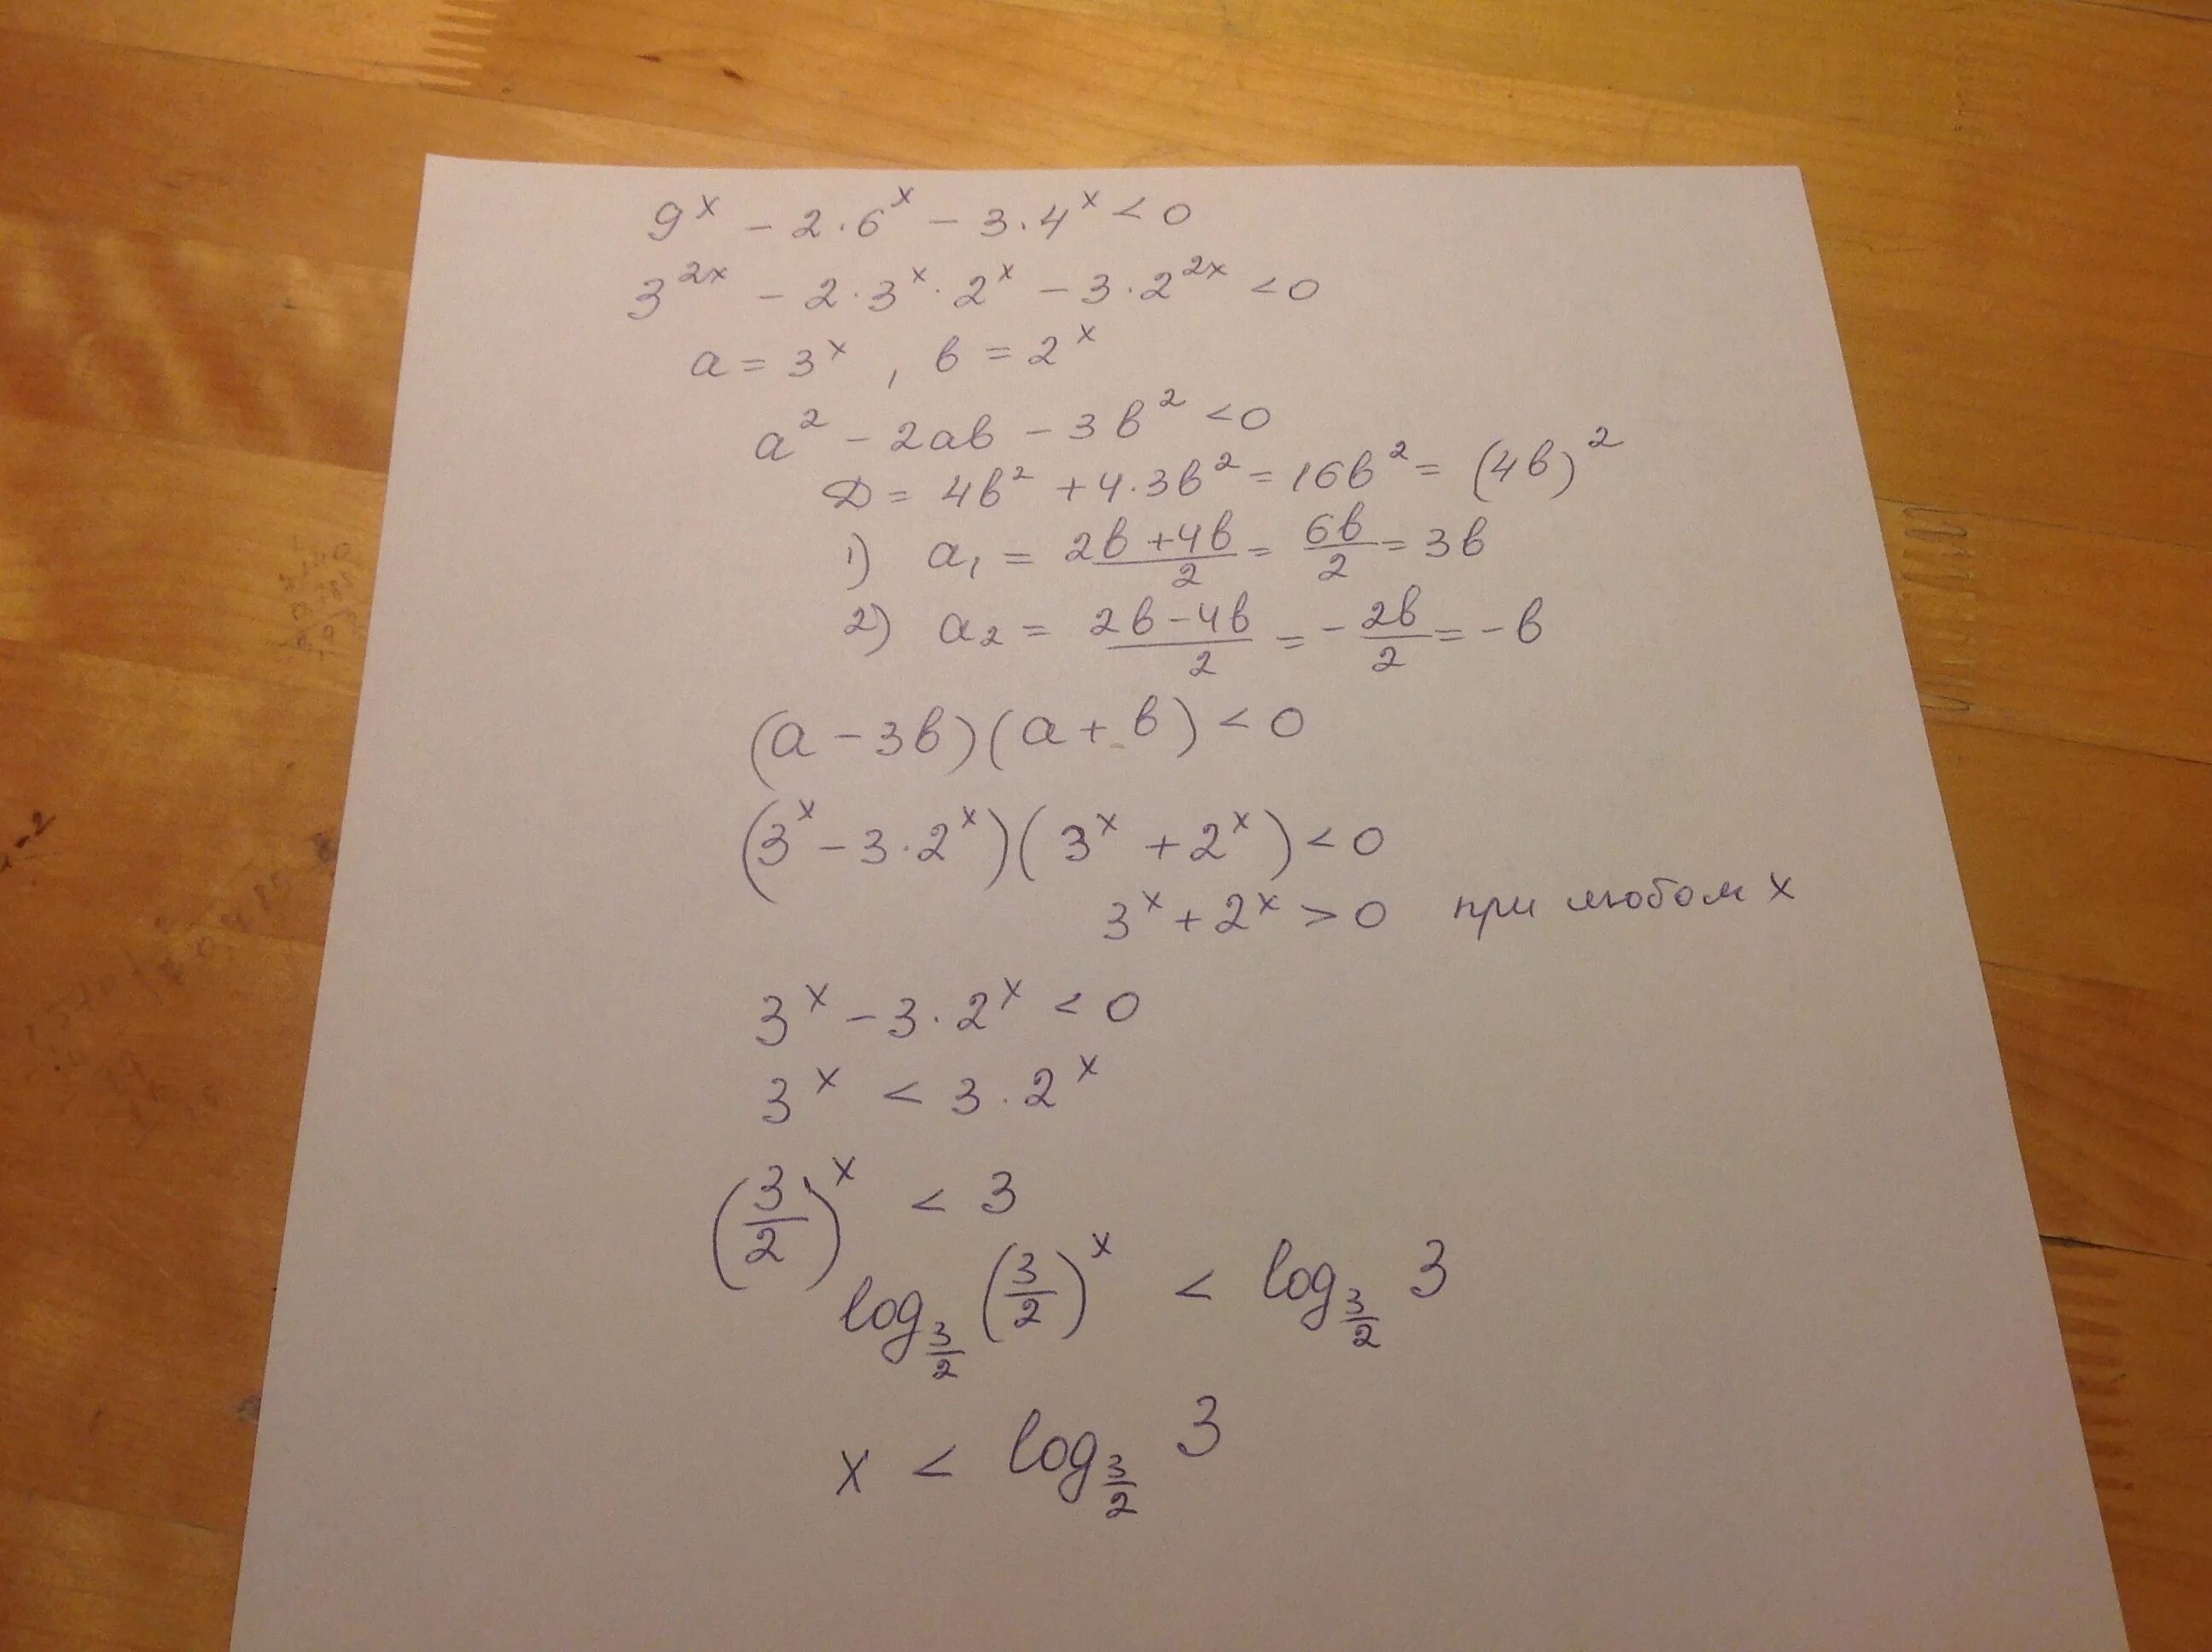 9^x - 2·6^x - 3·4^x < 0
3^2x - 2·3^x·2^x - 3·2^2x < 0
a = 3^x , b = 2^x
a^2 - 2ab - 3b^2 < 0
D = 4b^2 + 4·3b^2 = 16b^2 = (4b)^2
1) a₁ = (2b+4b)/2 = 6b/2 = 3b
2) a₂ = (2b-4b)/2 = -2b/2 = -b
(a - 3b)(a + b) < 0
(3^x - 3·2^x)(3^x + 2^x) < 0
3^x + 2^x > 0 при любом x
3^x - 3·2^x < 0
3^x < 3·2^x
(3/2)^x < 3
log_3/2 (3/2)^x < log_3/2 3
x < log_3/2 3